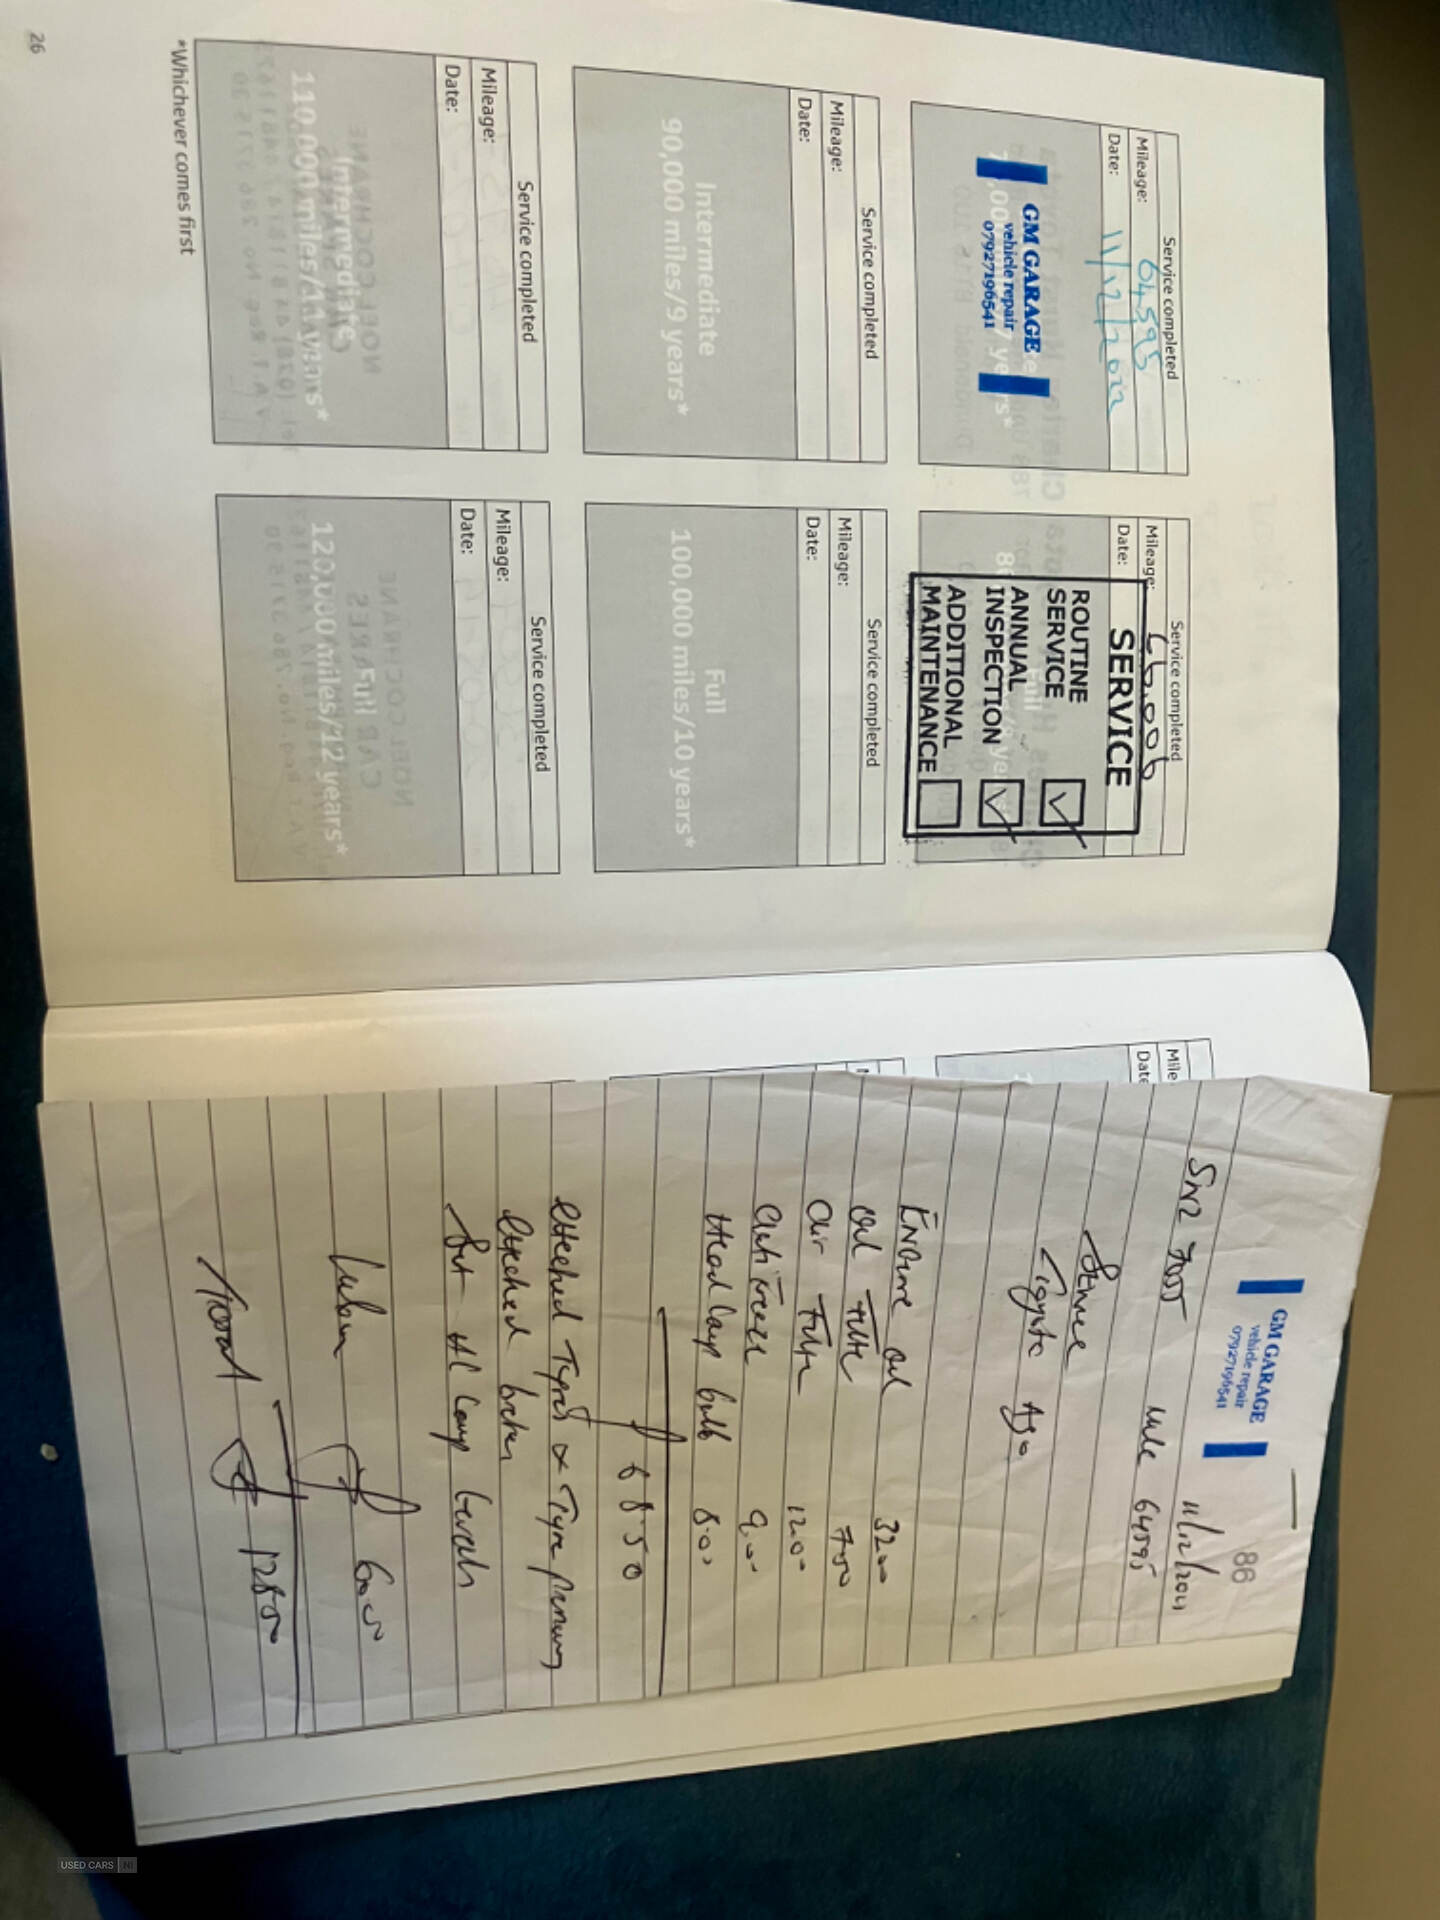 Service completed
Mileage: 64595
Date: 11/12/2022
GM GARAGE
vehicle repair
07927196541
Service completed
Mileage: 66,006
Date:
SERVICE
ROUTINE
SERVICE
ANNUAL
INSPECTION
ADDITIONAL
MAINTENANCE
Service completed
Mileage:
Date:
Intermediate
90,000 miles/9 years*
Service completed
Mileage:
Date:
Full
100,000 miles/10 years*
Service completed
Mileage:
Date:
Intermediate
110,000 miles/11 years*
Service completed
Mileage:
Date:
Full
120,000 miles/12 years*
*Whichever comes first
26
Mile
Date
86
GM GARAGE
vehicle repair
07927196541
11/12/2021
mile 64595
Service
Engine oil 3200
oil Filte 700
air Filte 1200
antifreeze 9.00
Head Lamp bulb 8.00
68.50
Checked Tyres &
Checked
Set Lamp
60.00
128.50
USED CARS NI